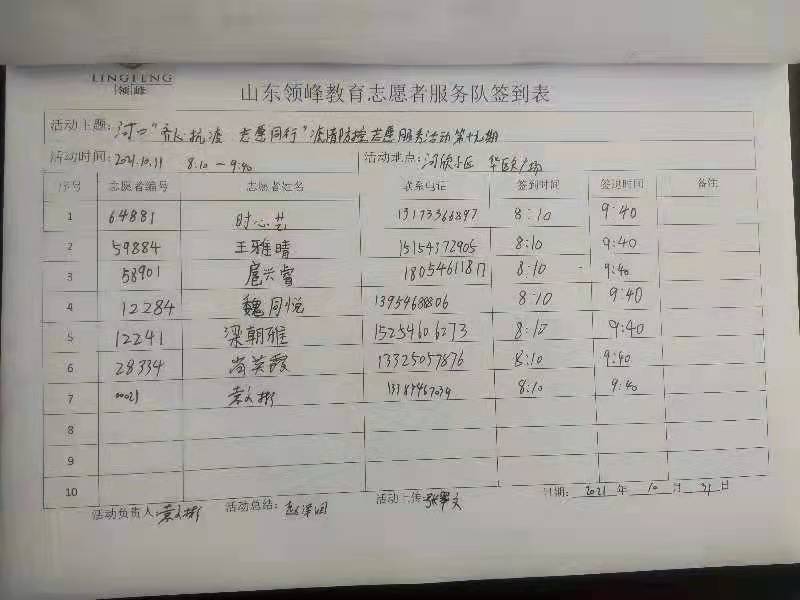 LINGFENG
领峰
山东领峰教育志愿者服务队签到表
活动主题：河口“齐心抗疫 志愿同行”疫情防控志愿服务活动第十九期
活动时间：2021.10.31 8:10－9:40 活动地点：河欣小区 华欧广场
序号 志愿者编号 志愿者姓名 联系电话 签到时间 签退时间 备注
1 64881 时心艺 8:10 9:40
2 59884 王雅晴 15154372905 8:10 9:40
3 58901 扈兴睿 18054611817 8:10 9:40
4 12284 魏同悦 8:10 9:40
5 12241 梁朝雅 15254606273 8:10 9:40
6 28334 尚英霞 13325057876 8:10 9:40
7 00021 袁文彬 8:10 9:40
8
9
10
活动负责人：袁文彬 活动总结： 活动上传： 日期：2021年10月31日